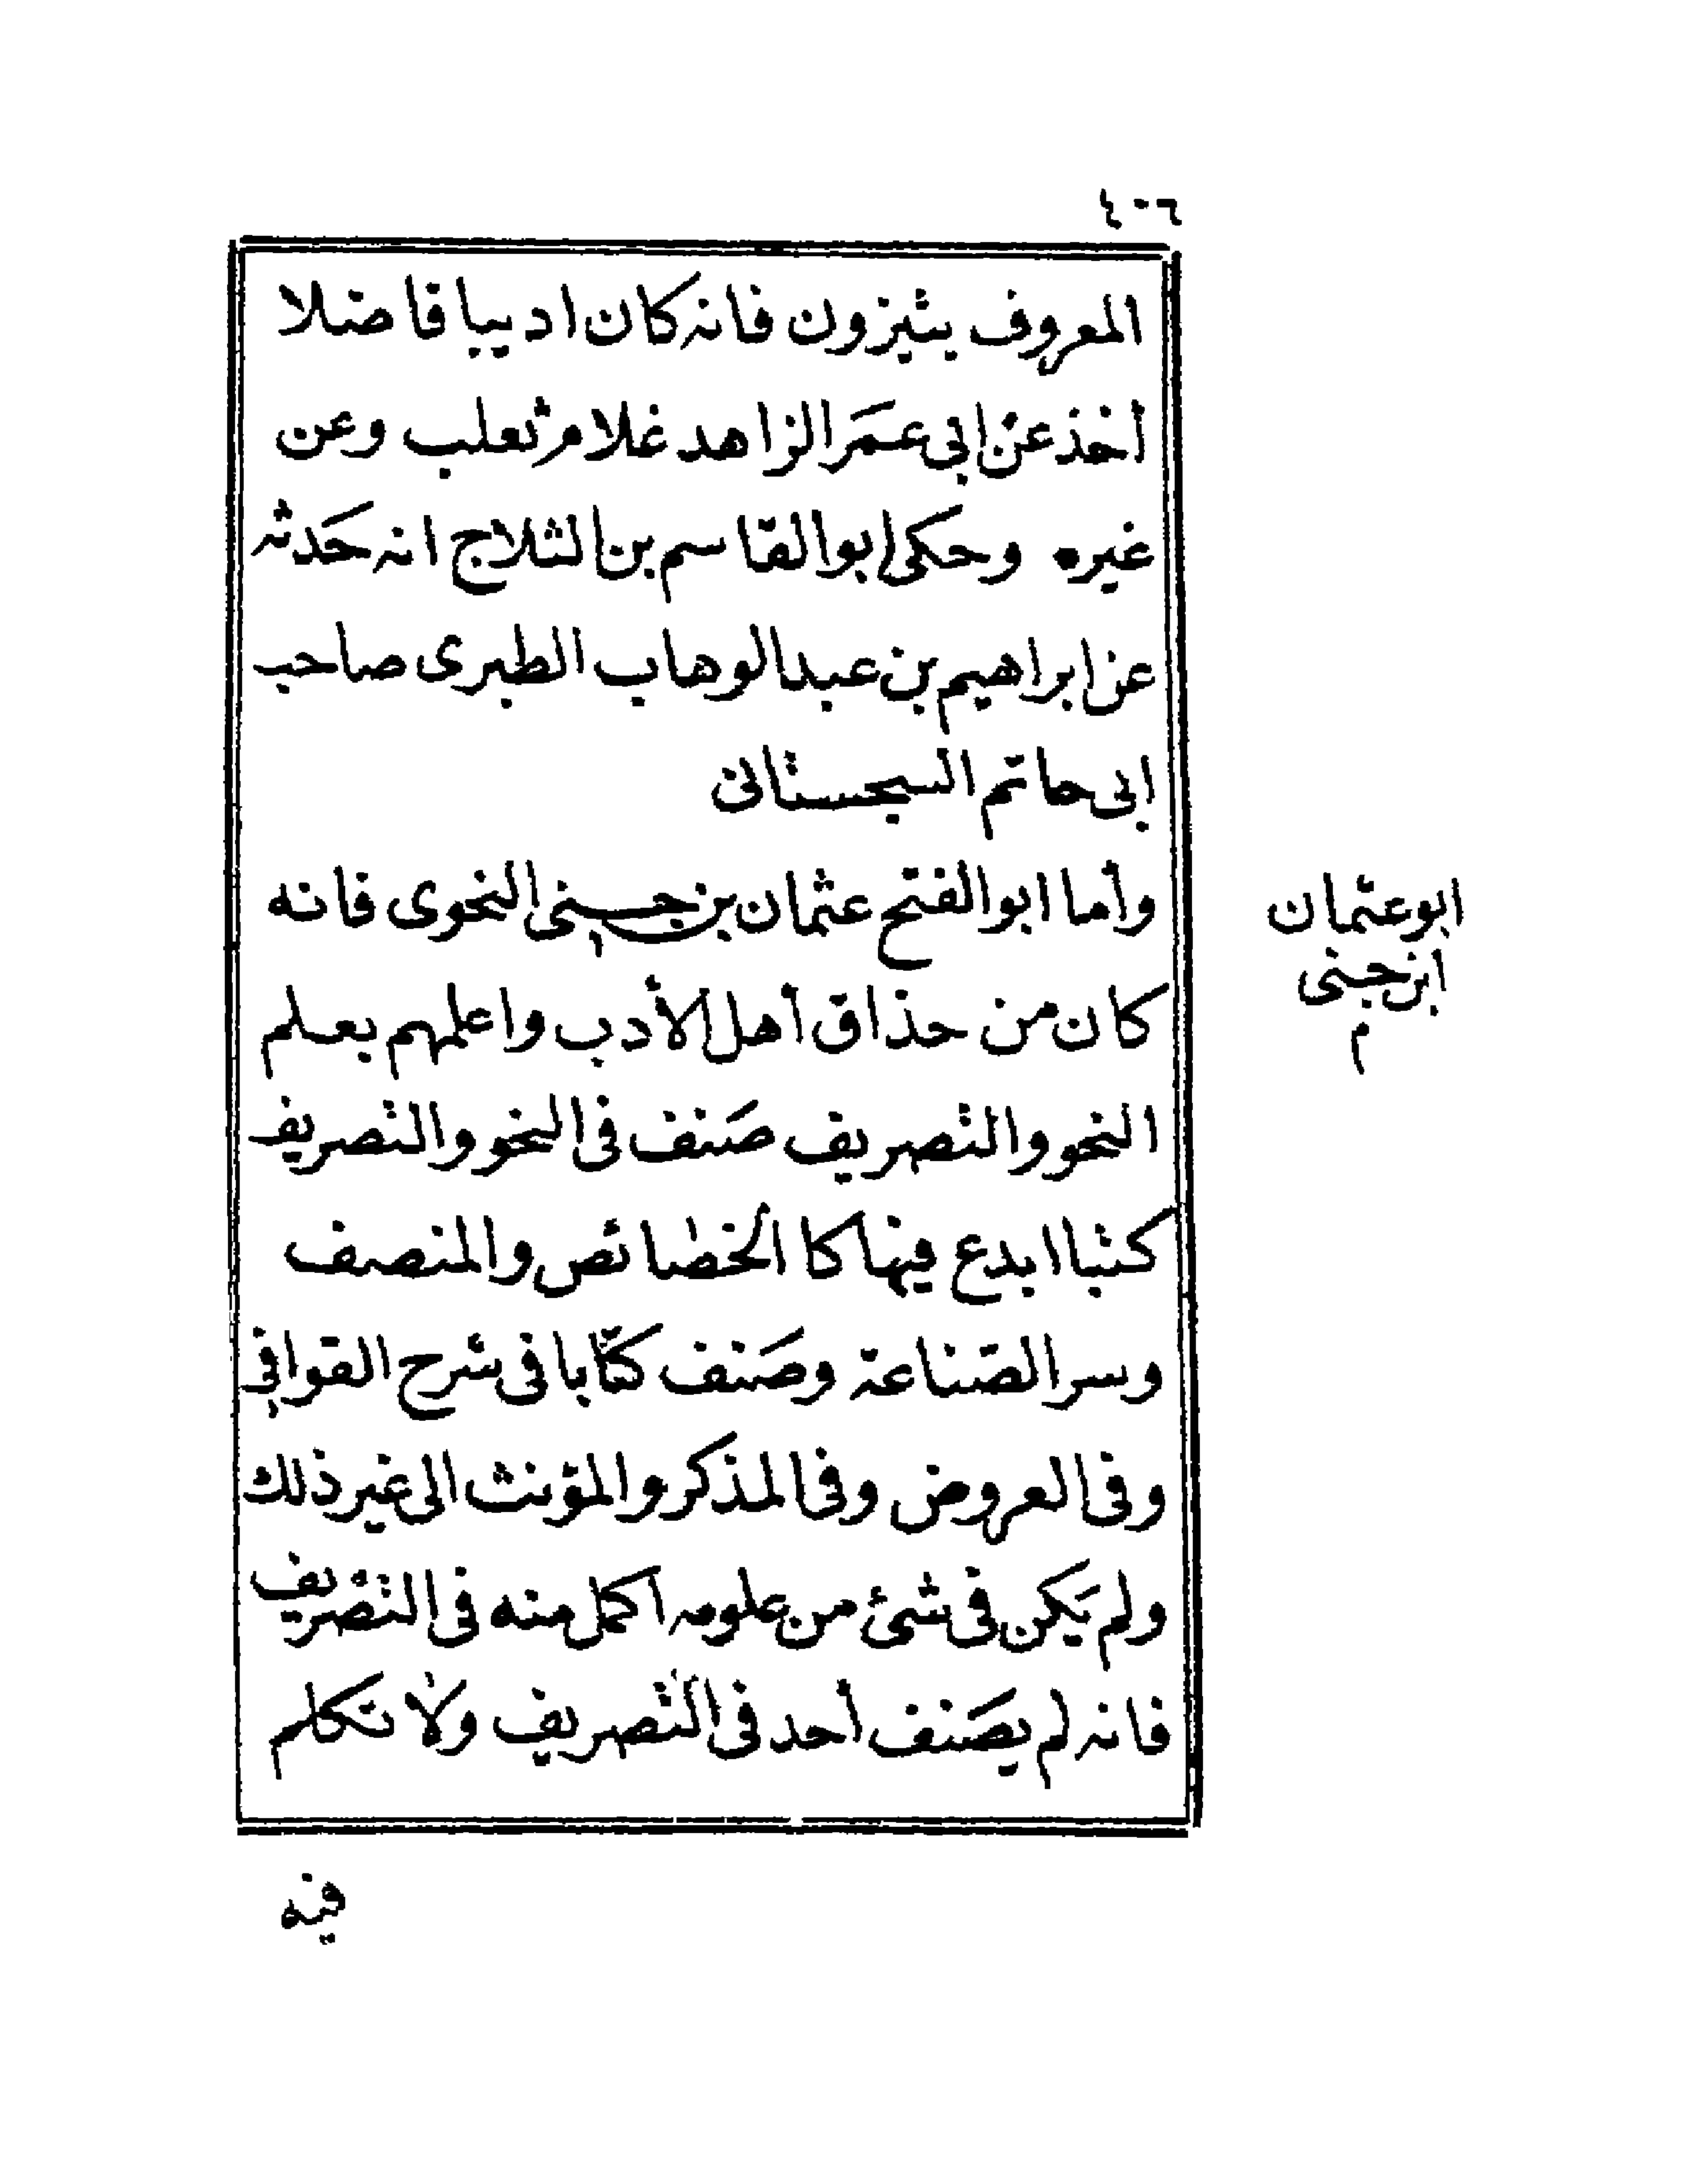 ٤٠٦
المعروف بتيزون فانه كان اديبا فاضلا
أخذ عن ابى عمَر الزاهد غلام ثعلب وعن
غيره وحكى ابو القاسم بن الثلاج انه حَدثه
عن ابراهيم بن عبد الوهاب الطبرى صاحب
ابى حاتم السجستانى
وأما ابو الفتح عثمان بن جنى النحوى فانه
كان من حذاق أهل الأدب واعلمهم بعلم
النحو والتصريف صَنف فى النحو والتصريف
كتبا ابدع فيها كا الخصائص والمنصف
وسر الصّناعة وصَنف كتّابا فى شرح القوافى
وفى العروض وفى المذكر والمؤنث الى غير ذلك
ولم يَكن فى شئ من علومه اكمل منه فى التصريف
فانه لم يصَنف أحد فى التصريف ولا تكلم
ابو عثمان
ابن جنى
م
فيه